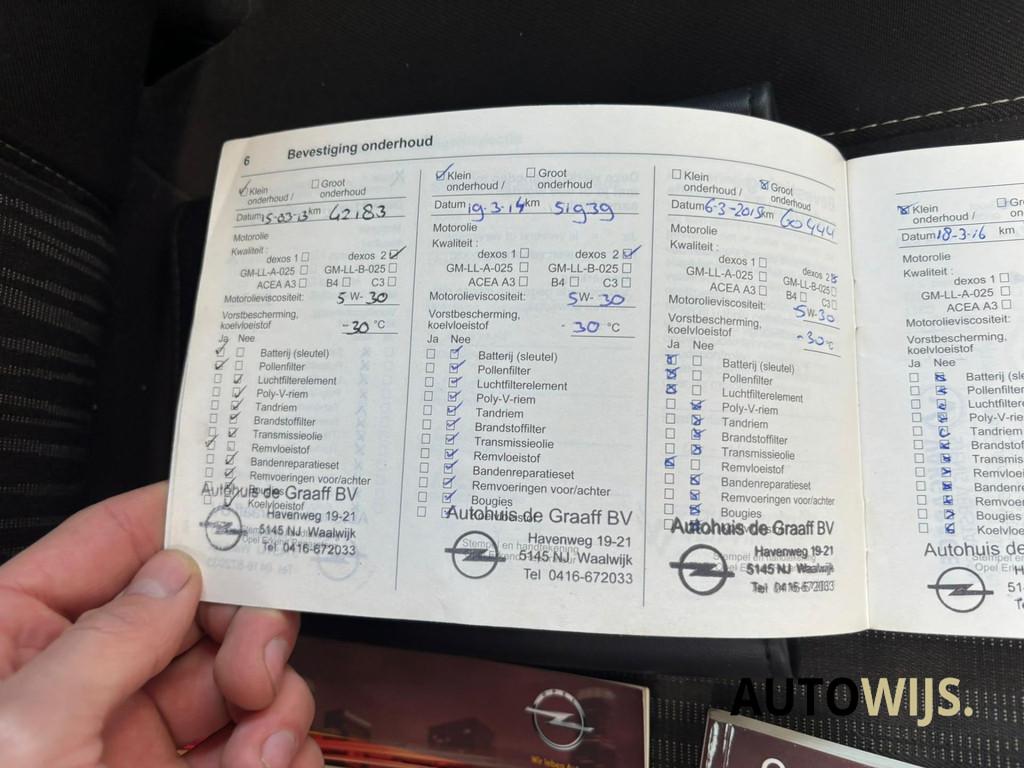 6 Bevestiging onderhoud
Klein onderhoud / Groot onderhoud
Datum 15-03-13 km 42183
Motorolie
Kwaliteit :
dexos 1 dexos 2
GM-LL-A-025 GM-LL-B-025
ACEA A3 B4 C3
Motorolieviscositeit: 5 W- 30
Vorstbescherming,
koelvloeistof -30 °C
Ja Nee
Batterij (sleutel)
Pollenfilter
Luchtfilterelement
Poly-V-riem
Tandriem
Brandstoffilter
Transmissieolie
Remvloeistof
Bandenreparatieset
Remvoeringen voor/achter
Bougies
Koelvloeistof
Autohuis de Graaff BV
Havenweg 19-21
5145 NJ Waalwijk
Tel 0416-672033
Klein onderhoud / Groot onderhoud
Datum 19-3-14 km 51939
Motorolie
Kwaliteit :
dexos 1 dexos 2
GM-LL-A-025 GM-LL-B-025
ACEA A3 B4 C3
Motorolieviscositeit: 5 W- 30
Vorstbescherming,
koelvloeistof - 30 °C
Ja Nee
Batterij (sleutel)
Pollenfilter
Luchtfilterelement
Poly-V-riem
Tandriem
Brandstoffilter
Transmissieolie
Remvloeistof
Bandenreparatieset
Remvoeringen voor/achter
Bougies
Autohuis de Graaff BV
Stempel en handtekening
Havenweg 19-21
5145 NJ Waalwijk
Tel 0416-672033
Klein onderhoud / Groot onderhoud
Datum 6-3-2015 km 60444
Motorolie
Kwaliteit :
dexos 1 dexos 2
GM-LL-A-025 GM-LL-B-025
ACEA A3 B4 C3
Motorolieviscositeit: 5 W- 30
Vorstbescherming,
koelvloeistof -30 °C
Ja Nee
Batterij (sleutel)
Pollenfilter
Luchtfilterelement
Poly-V-riem
Tandriem
Brandstoffilter
Transmissieolie
Remvloeistof
Bandenreparatieset
Remvoeringen voor/achter
Bougies
Autohuis de Graaff BV
Havenweg 19-21
5145 NJ Waalwijk
Tel 0416-672033
Klein onderhoud /
Datum 18-3-16 km
Motorolie
Kwaliteit :
dexos 1
GM-LL-A-025
ACEA A3
Motorolieviscositeit:
Vorstbescherming,
koelvloeistof
Ja Nee
Batterij
Pollenfilter
Poly-V-riem
Tandriem
Bougies
Autohuis de
AUTOWIJS.